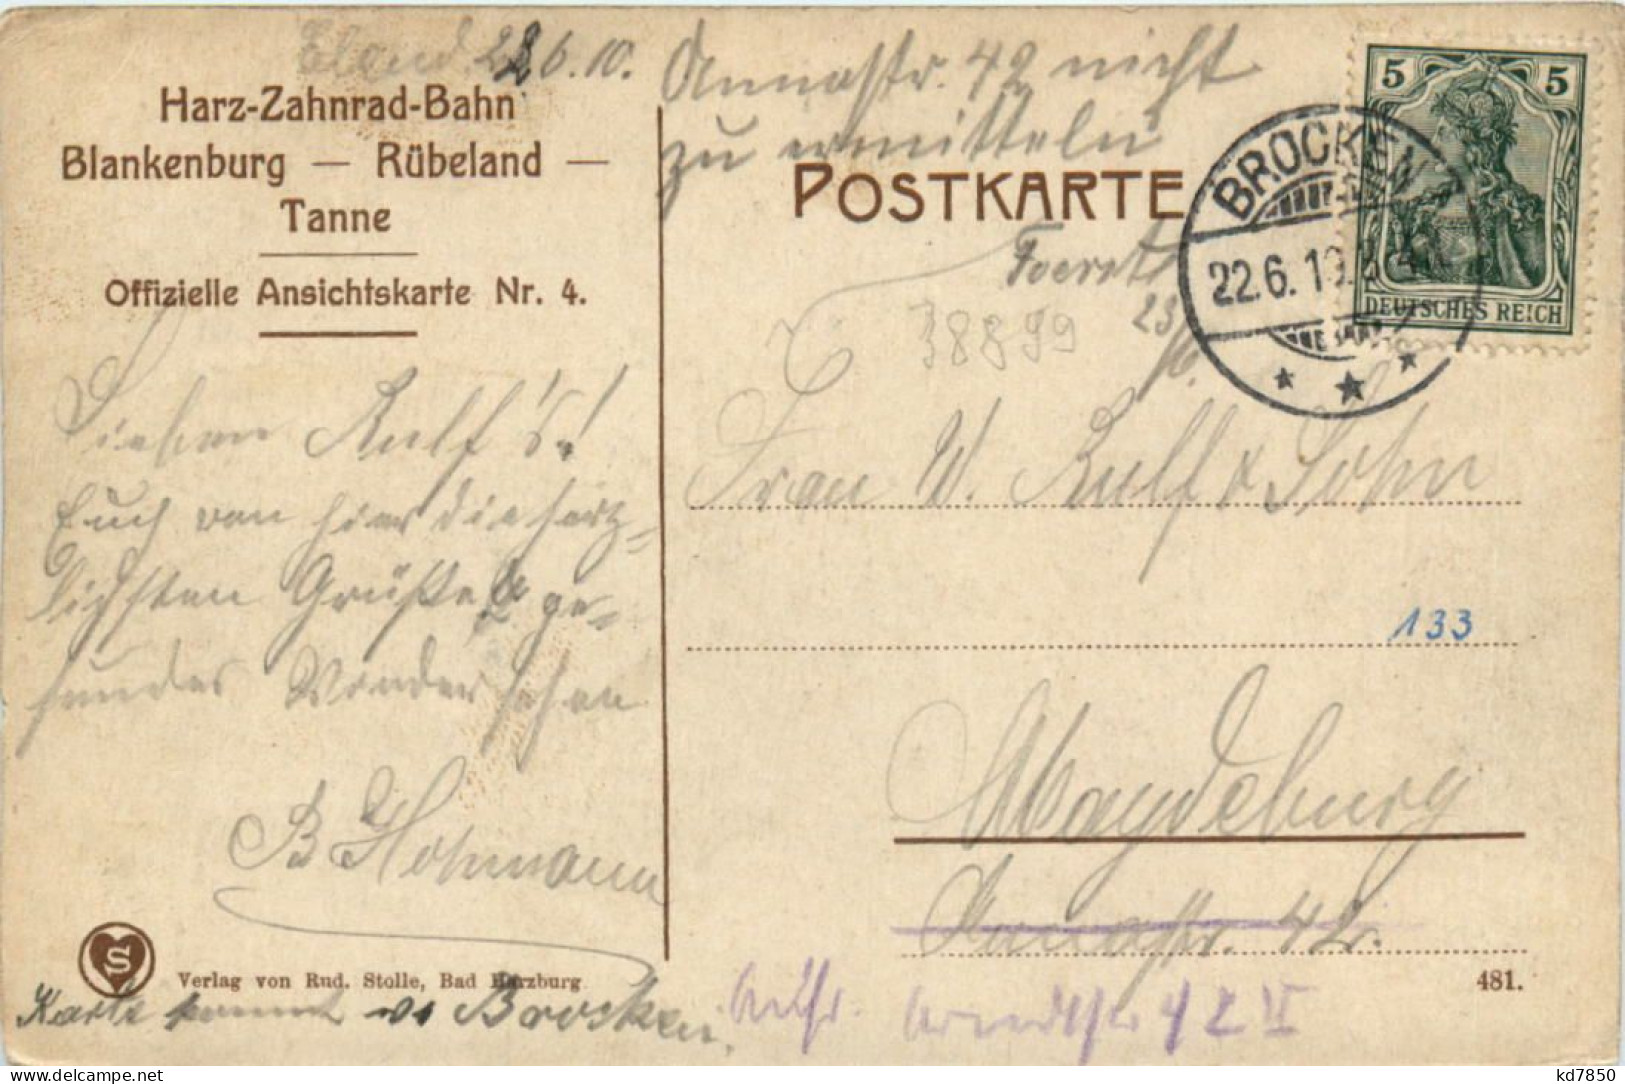 Elend 22.6.10.
Harz-Zahnrad-Bahn
Blankenburg — Rübeland —
Tanne
Offizielle Ansichtskarte Nr. 4.
Lieben Rulf's!
Euch von hier die herz=
lichsten Grüße & ge=
sundes Wiedersehen
B Hohmann
Verlag von Rud. Stolle, Bad Harzburg
S
Karte kommt v. Brocken.
Annastr. 42 nicht
zu ermitteln
POSTKARTE
23/6.
38899
BROCKEN
22.6.10.
5 5
DEUTSCHES REICH
Frau W. Rulf & Sohn
133
Magdeburg
Annastr. 42.
481.
42 II
kd7850